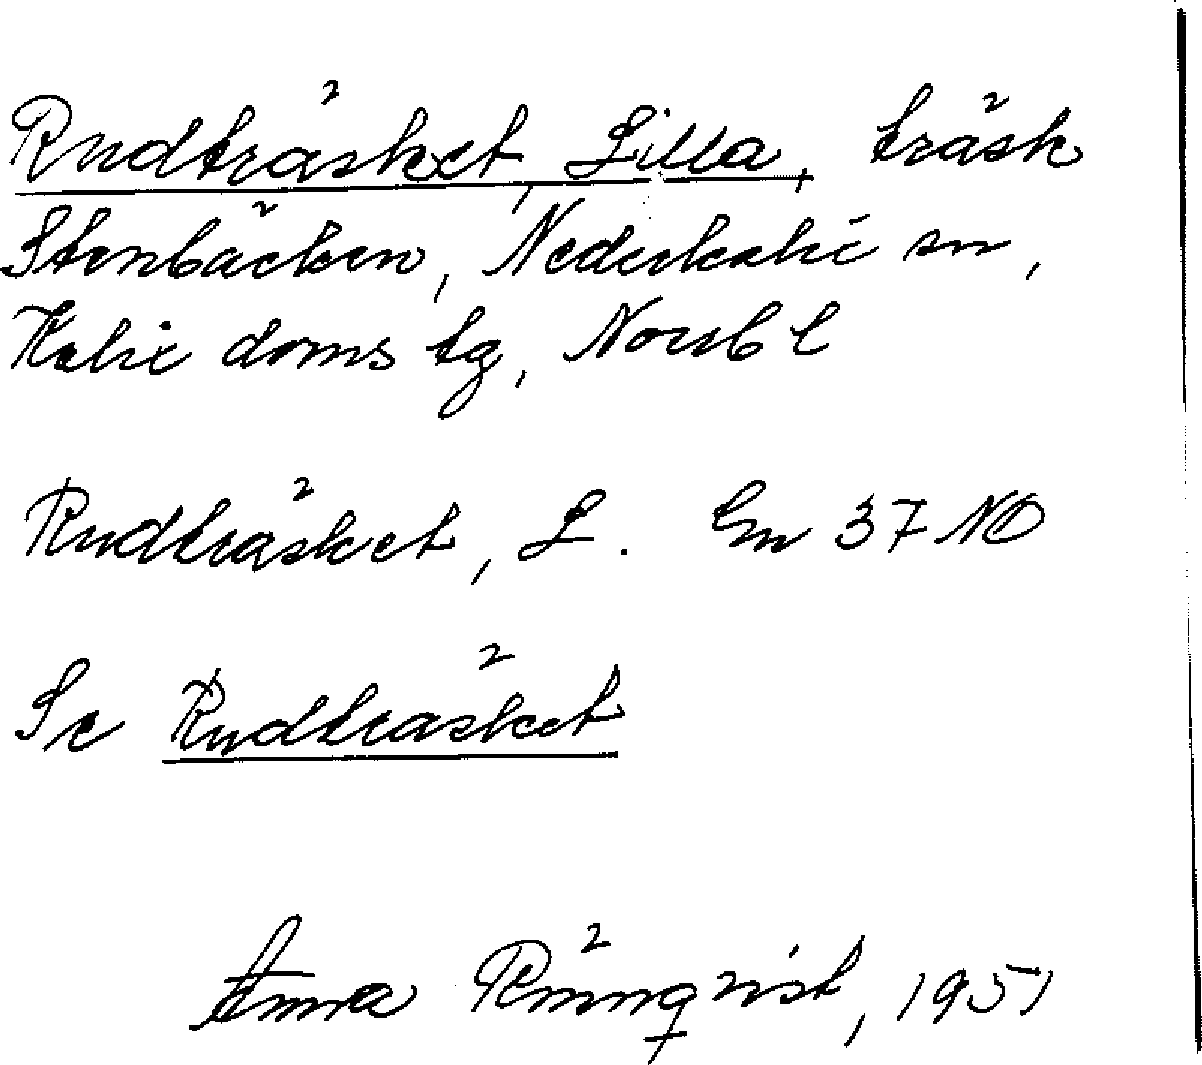 Rudträsket, Lilla, träsk
Stenbäcken, Nederkalix sn,
Kalix doms tg, Norrb l
Rudträsket, L. Gn 37 NO
Se Rudträsket
Anna Rönnqvist, 1951